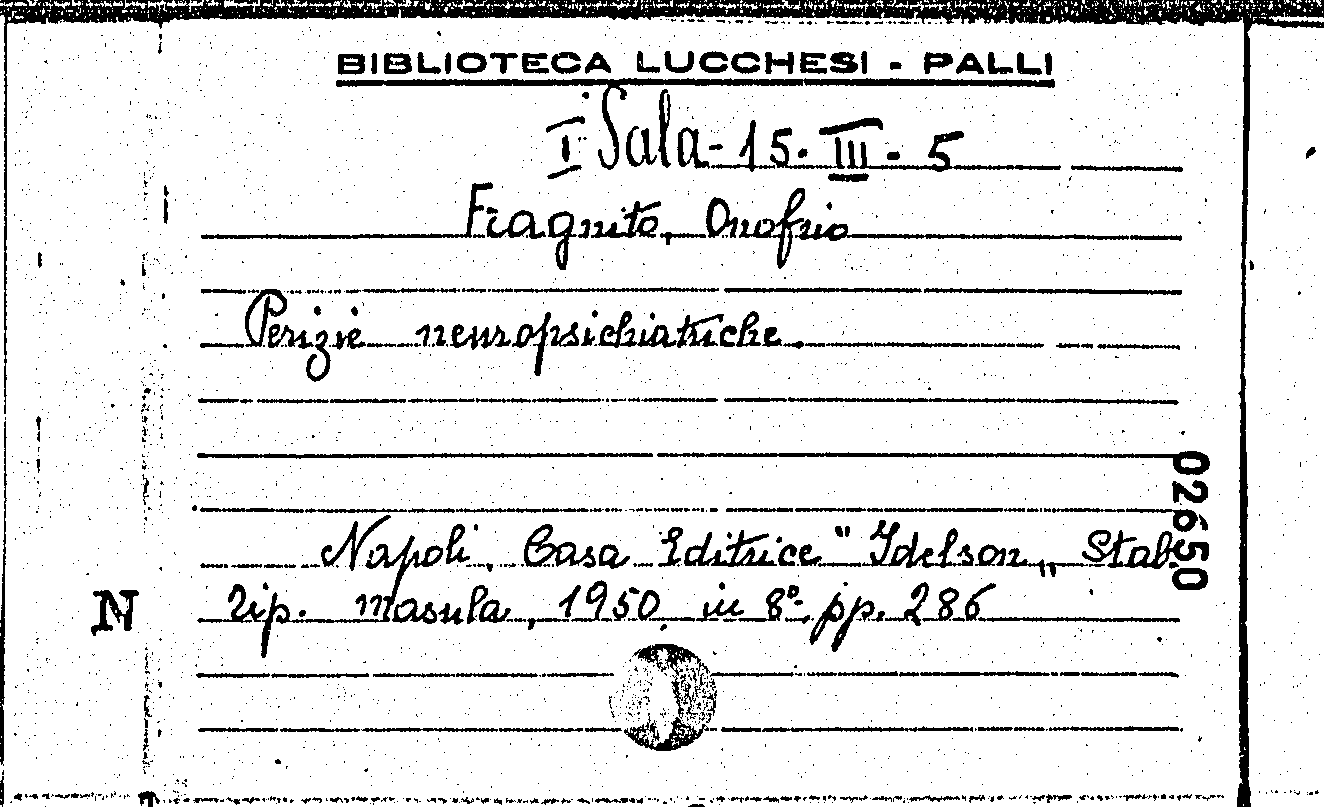 BIBLIOTECA LUCCHESI - PALLI
I Sala - 15. III. 5
Fragnito, Onofrio
Perizie neuropsichiatriche.
Napoli, Casa Editrice "Idelson„ Stab.
Tip. Masula, 1950, in 8º, pp. 286
N
02650